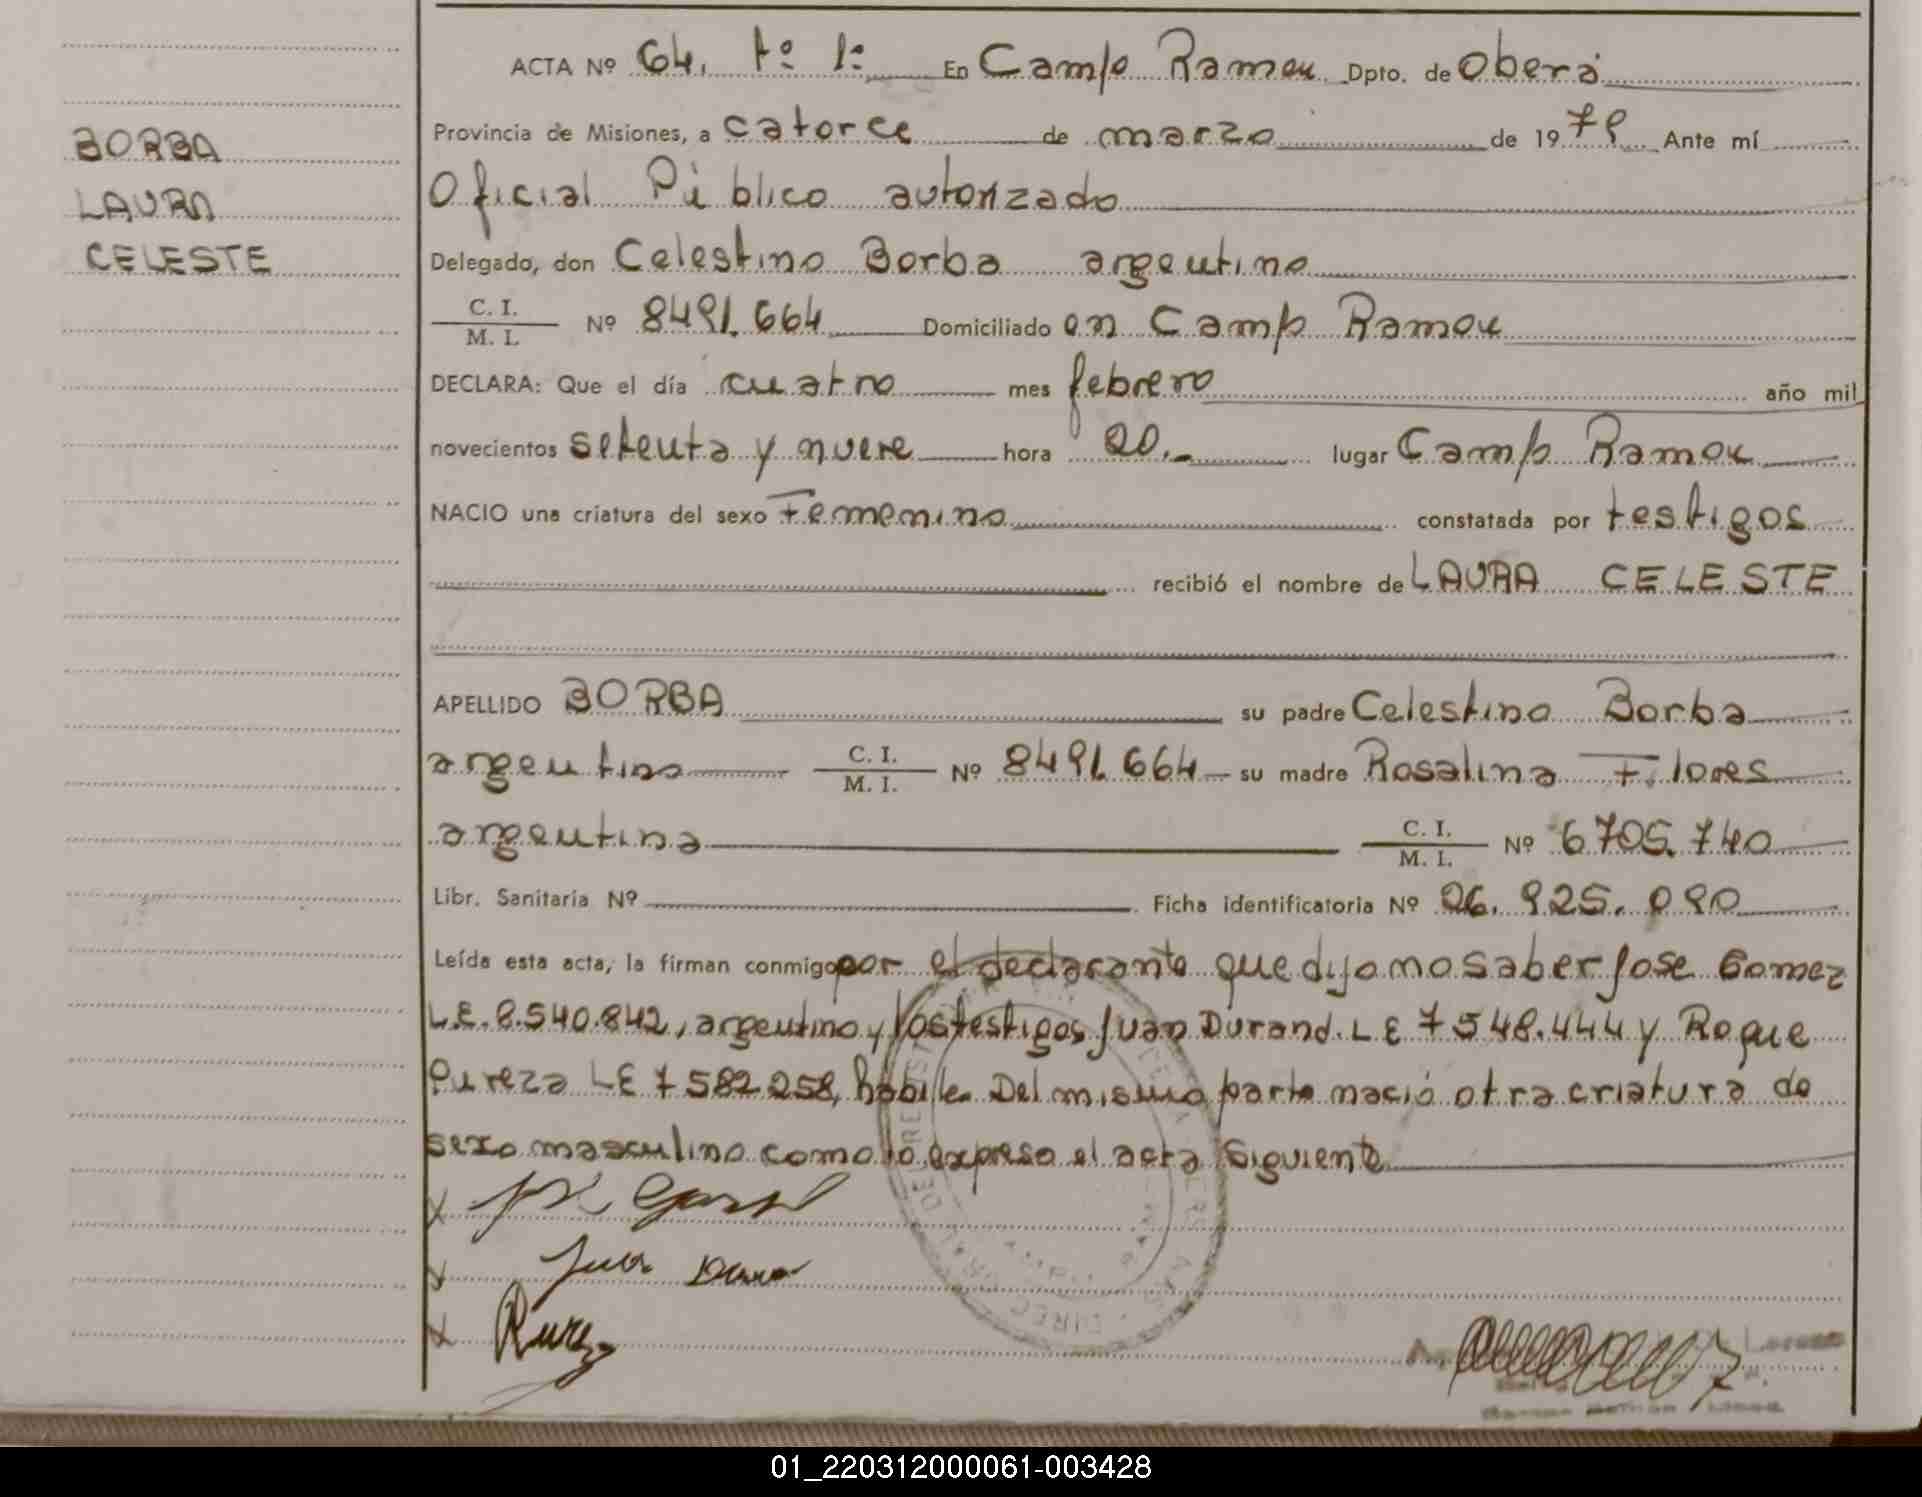 ACTA Nº 64. tº 1º En Campo Ramon Dpto. de Oberá
Provincia de Misiones, a catorce de marzo de 1979 Ante mí
BORBA
Oficial Público autorizado
LAURA
Delegado, don Celestino Borba argentino
CELESTE
C. I.
M. I. Nº 8491.664 Domiciliado en Campo Ramon
DECLARA: Que el día cuatro mes febrero año mil
novecientos setenta y nueve hora 20.- lugar Campo Ramon
NACIO una criatura del sexo Femenino constatada por testigos
recibió el nombre de LAURA CELESTE
APELLIDO BORBA su padre Celestino Borba
argentino C. I. M. I. Nº 8491.664 su madre Rosalina Flores
argentina C. I. M. I. Nº 6705.740
Libr. Sanitaria Nº Ficha identificatoria Nº 26.925.090
Leída esta acta, la firman conmigo por el declarante que dijo no saber Jose Gomez
L.E. 8.540.842, argentino y los testigos Juan Durand. L E 7548.444 y Roque
Pureza L E 7582258, habiles. Del mismo parto nació otra criatura de
sexo masculino como lo expresa el acta siguiente
Juan Duran
01_220312000061-003428